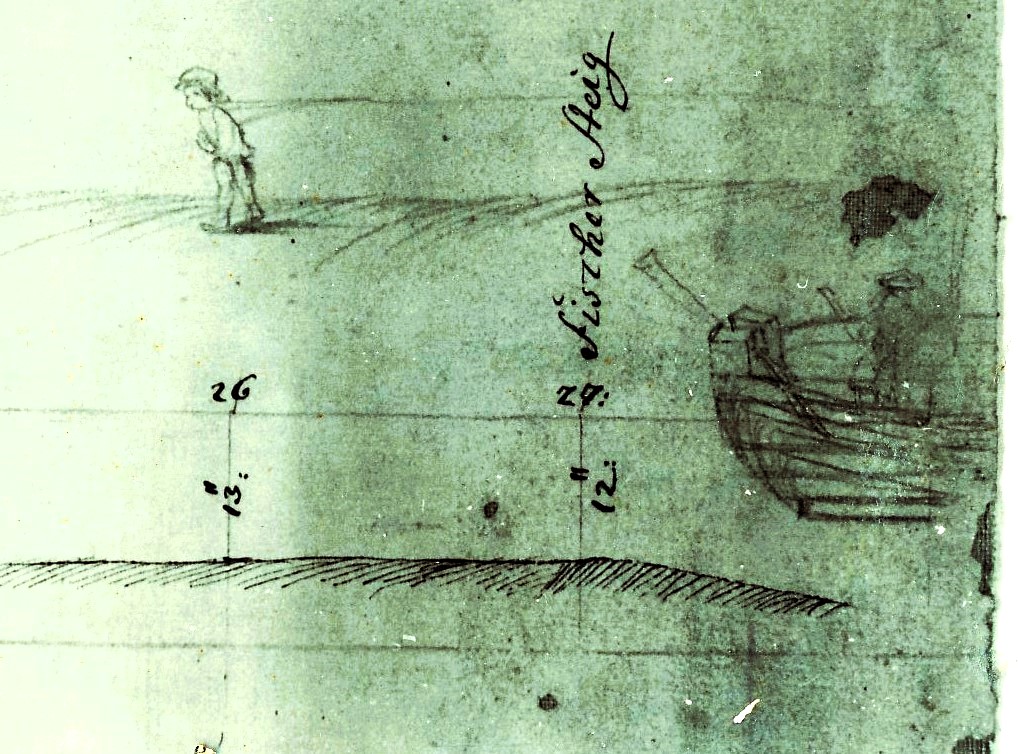 26
13:"
27: Fischer Steig
12:"